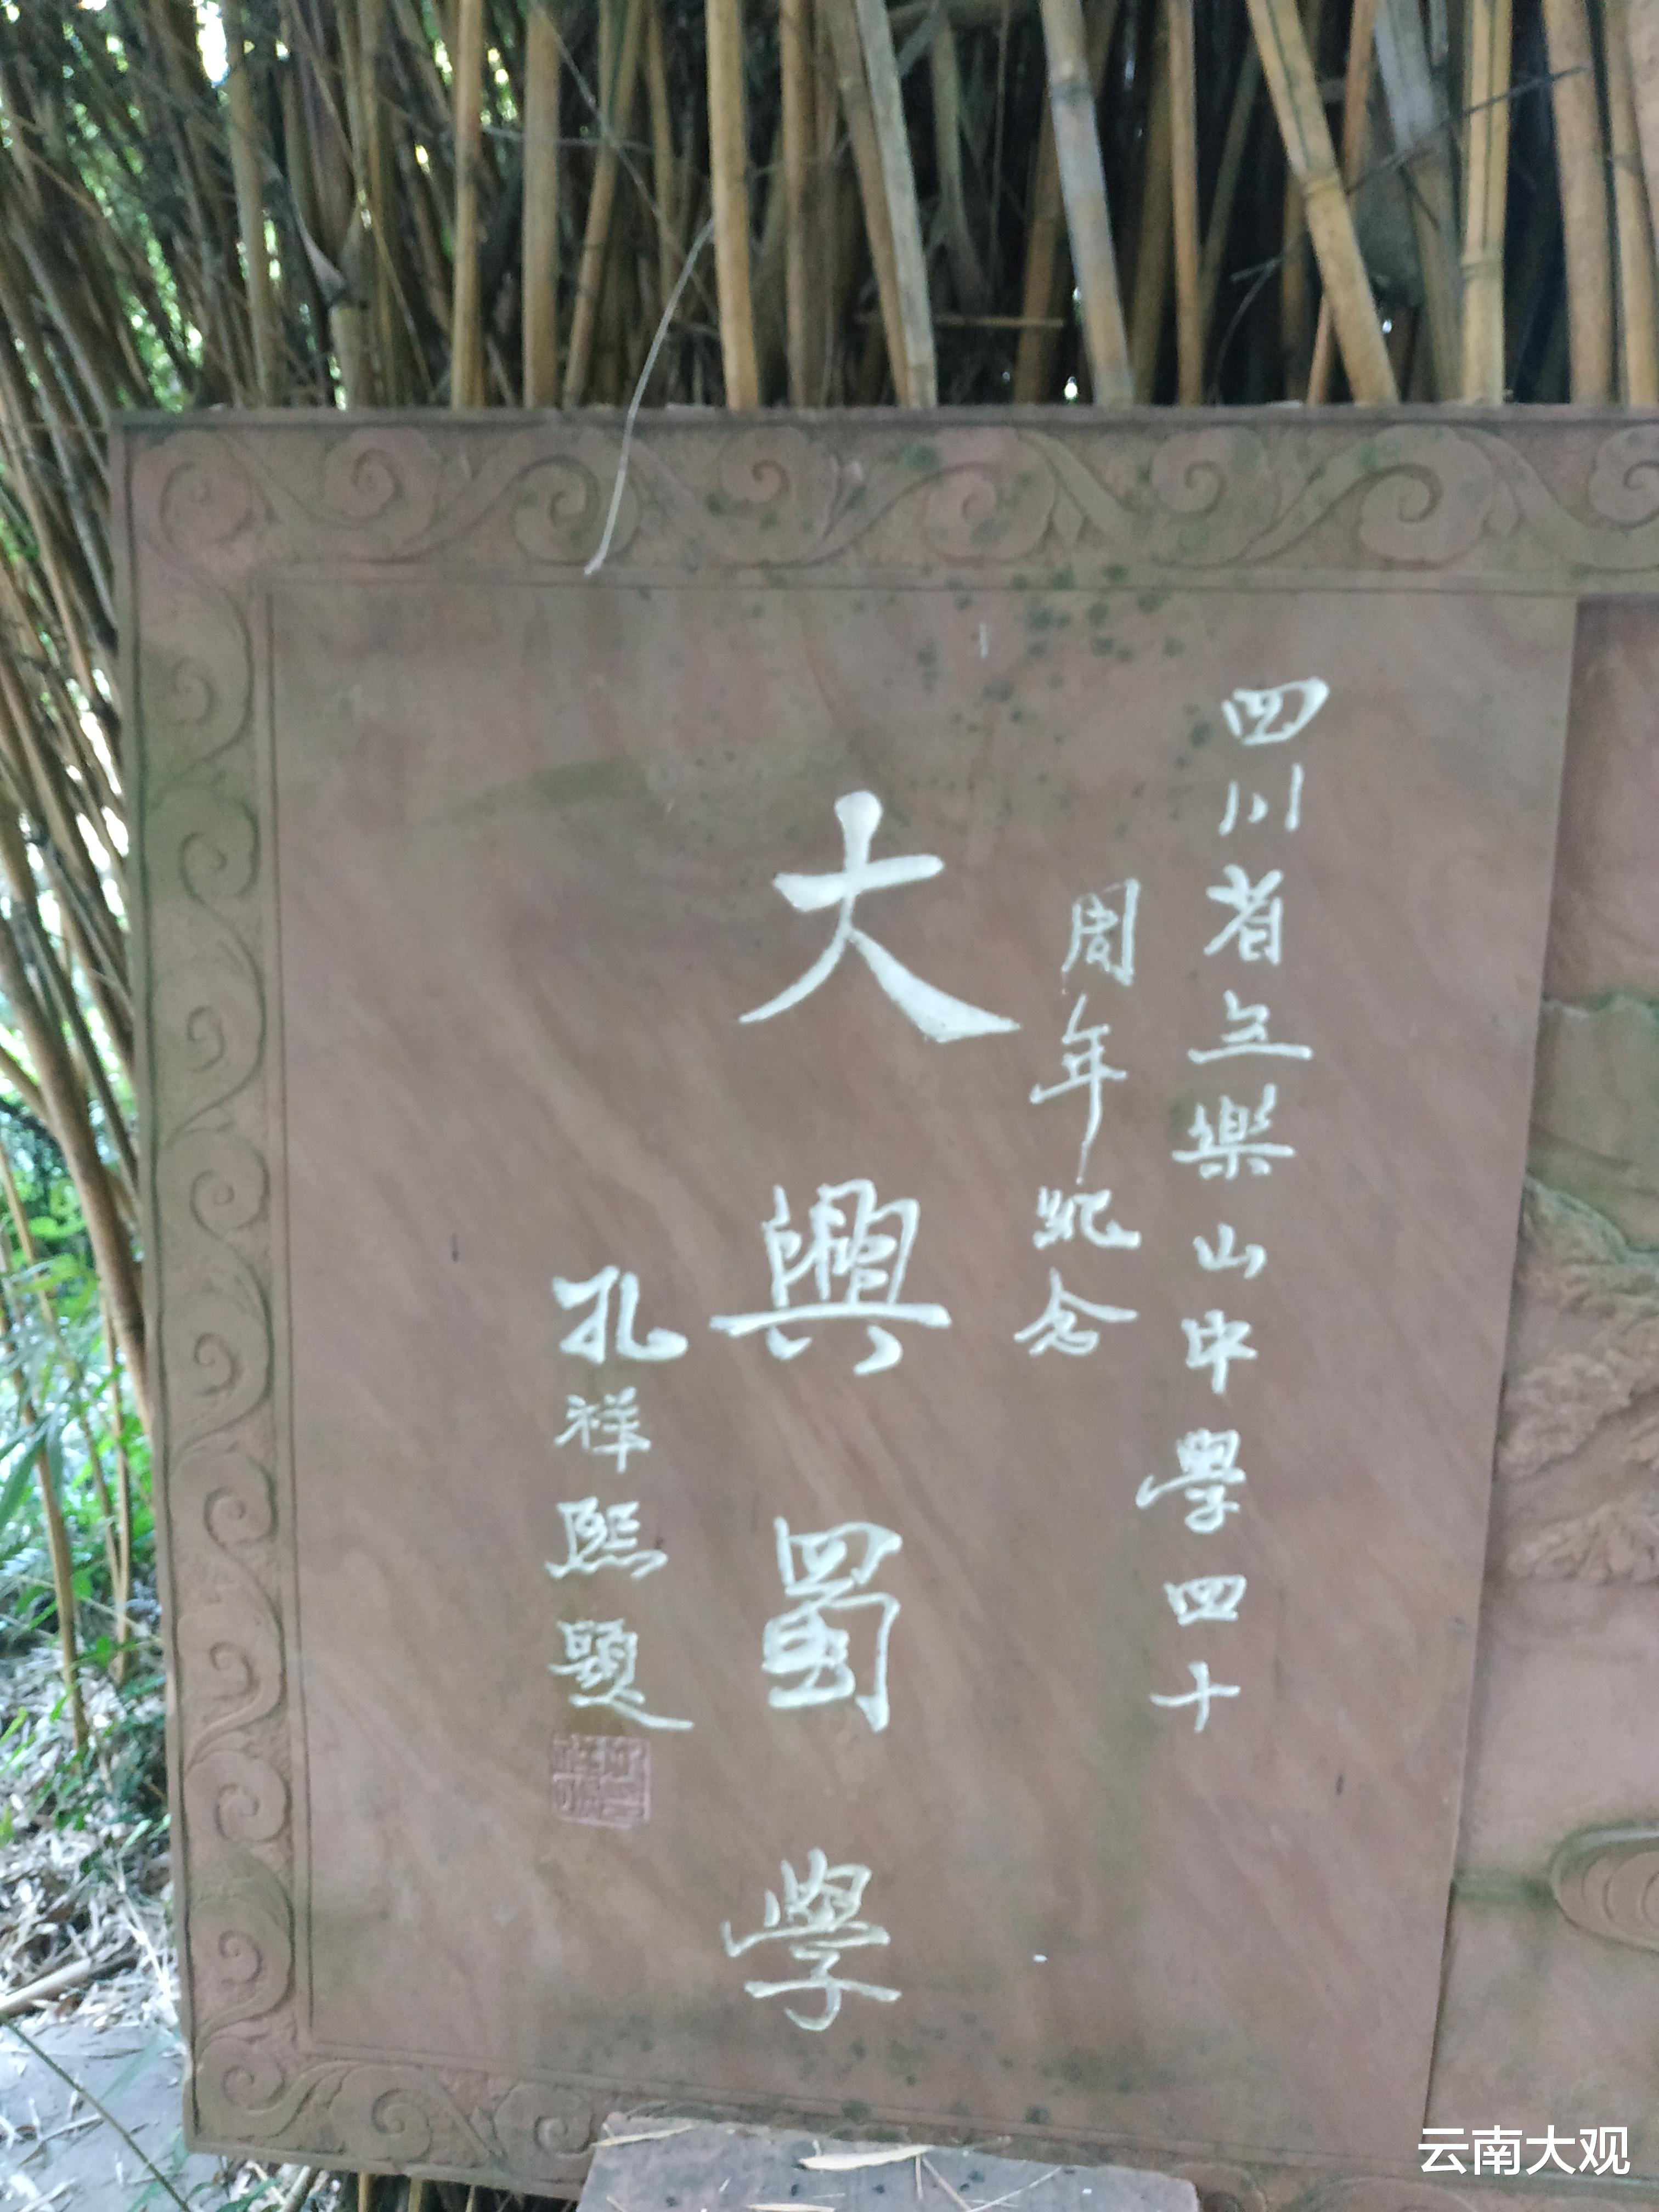 四川省立樂山中學四十
周年紀念
大興蜀學
孔祥熙題
云南大观